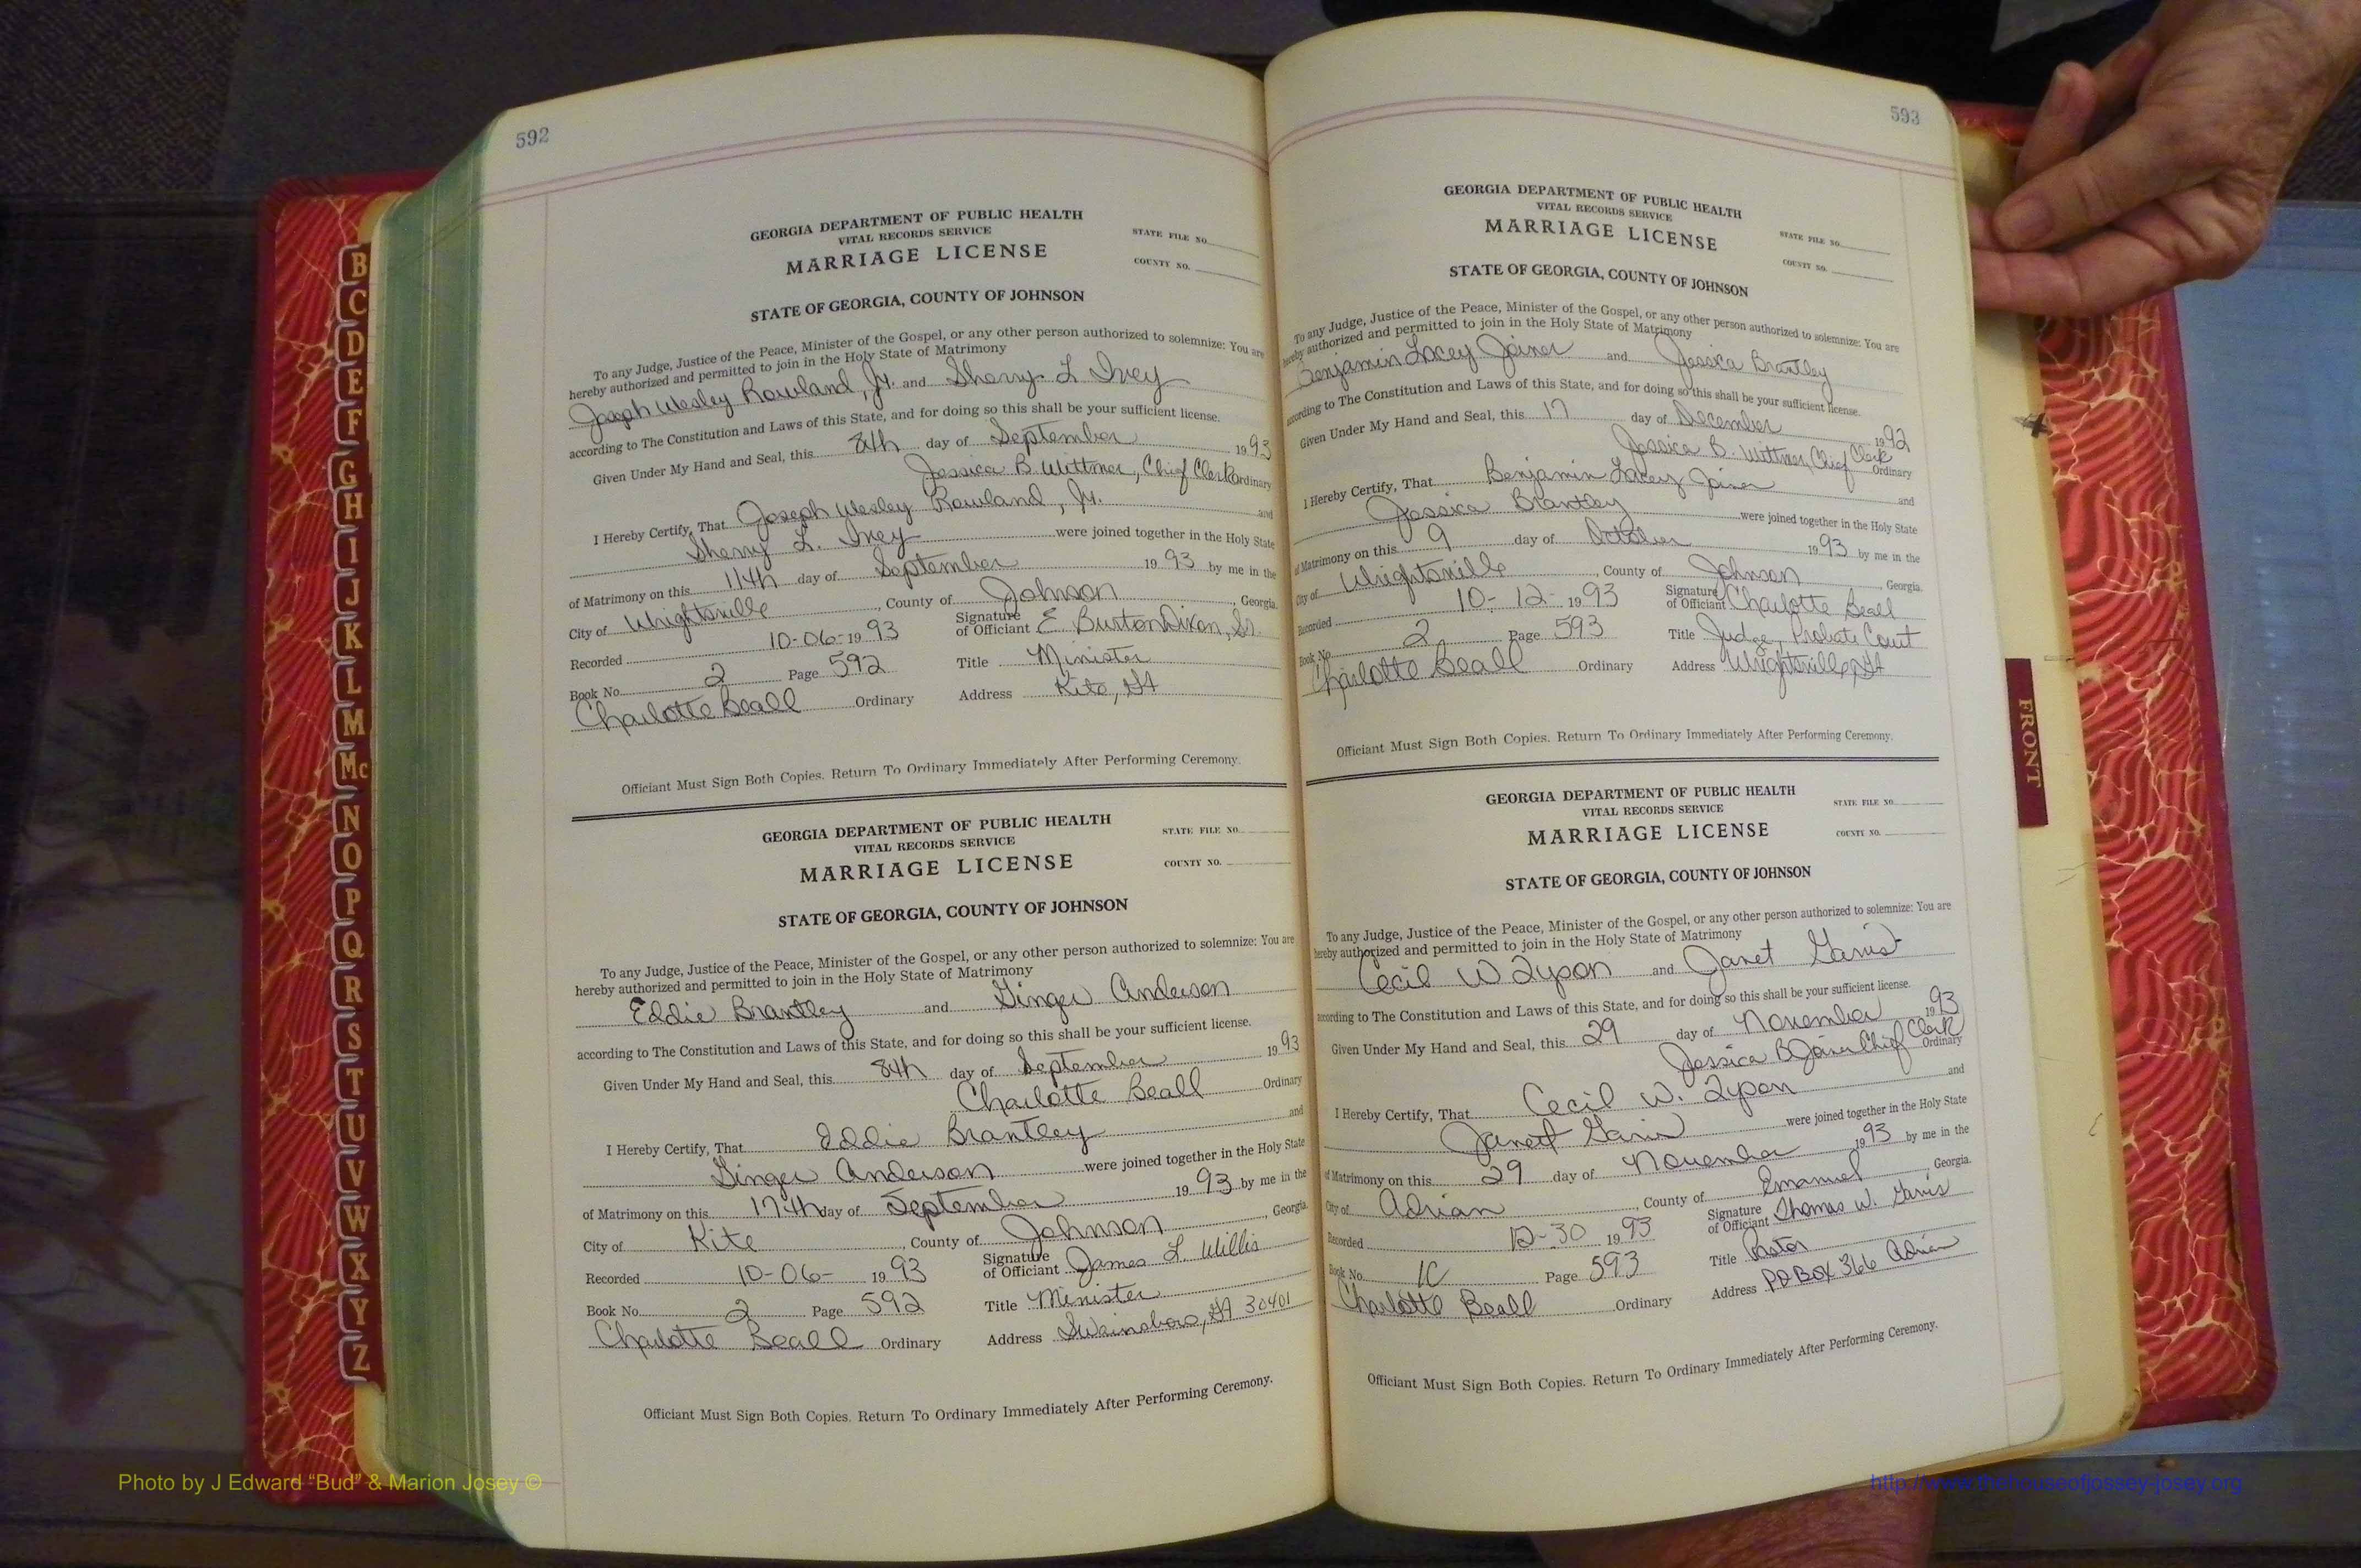 592
GEORGIA DEPARTMENT OF PUBLIC HEALTH
VITAL RECORDS SERVICE
MARRIAGE LICENSE
STATE FILE NO.
COUNTY NO.
STATE OF GEORGIA, COUNTY OF JOHNSON
To any Judge, Justice of the Peace, Minister of the Gospel, or any other person authorized to solemnize: You are
hereby authorized and permitted to join in the Holy State of Matrimony
Joseph Wesley Rowland, Jr. and Sherry L Ivey
according to The Constitution and Laws of this State, and for doing so this shall be your sufficient license.
Given Under My Hand and Seal, this 8th day of September 1993
Jessica B. Wittmer, Chief Clerk Ordinary
I Hereby Certify, That Joseph Wesley Rowland, Jr. and
Sherry L. Ivey were joined together in the Holy State
of Matrimony on this 11th day of September 1993 by me in the
City of Wrightsville, County of Johnson, Georgia.
Recorded 10-06-1993 Signature of Officiant E Burton Dixon, Sr.
Book No. 2 Page 592 Title Minister
Charlotte Beall Ordinary Address Kite, GA
Officiant Must Sign Both Copies. Return To Ordinary Immediately After Performing Ceremony.
GEORGIA DEPARTMENT OF PUBLIC HEALTH
VITAL RECORDS SERVICE
MARRIAGE LICENSE
STATE FILE NO.
COUNTY NO.
STATE OF GEORGIA, COUNTY OF JOHNSON
To any Judge, Justice of the Peace, Minister of the Gospel, or any other person authorized to solemnize: You are
hereby authorized and permitted to join in the Holy State of Matrimony
Eddie Brantley and Ginger Anderson
according to The Constitution and Laws of this State, and for doing so this shall be your sufficient license.
Given Under My Hand and Seal, this 8th day of September 1993
Charlotte Beall Ordinary
I Hereby Certify, That Eddie Brantley and
Ginger Anderson were joined together in the Holy State
of Matrimony on this 17th day of September 1993 by me in the
City of Kite, County of Johnson, Georgia.
Recorded 10-06- 1993 Signature of Officiant James L. Willis
Book No. 2 Page 592 Title Minister
Charlotte Beall Ordinary Address Swainsboro, GA 30401
Officiant Must Sign Both Copies. Return To Ordinary Immediately After Performing Ceremony.
593
GEORGIA DEPARTMENT OF PUBLIC HEALTH
VITAL RECORDS SERVICE
MARRIAGE LICENSE
STATE FILE NO.
COUNTY NO.
STATE OF GEORGIA, COUNTY OF JOHNSON
To any Judge, Justice of the Peace, Minister of the Gospel, or any other person authorized to solemnize: You are
hereby authorized and permitted to join in the Holy State of Matrimony
Benjamin Lacey Joiner and Jessica Brantley
according to The Constitution and Laws of this State, and for doing so this shall be your sufficient license.
Given Under My Hand and Seal, this 17 day of December 1992
Jessica B. Wittmer, Chief Clerk Ordinary
I Hereby Certify, That Benjamin Lacey Joiner and
Jessica Brantley were joined together in the Holy State
of Matrimony on this 9 day of October 1993 by me in the
City of Wrightsville, County of Johnson, Georgia.
Recorded 10-12-1993 Signature of Officiant Charlotte Beall
Book No. 2 Page 593 Title Judge, Probate Court
Charlotte Beall Ordinary Address Wrightsville, GA
Officiant Must Sign Both Copies. Return To Ordinary Immediately After Performing Ceremony.
GEORGIA DEPARTMENT OF PUBLIC HEALTH
VITAL RECORDS SERVICE
MARRIAGE LICENSE
STATE FILE NO.
COUNTY NO.
STATE OF GEORGIA, COUNTY OF JOHNSON
To any Judge, Justice of the Peace, Minister of the Gospel, or any other person authorized to solemnize: You are
hereby authorized and permitted to join in the Holy State of Matrimony
Cecil W and Janet
according to The Constitution and Laws of this State, and for doing so this shall be your sufficient license.
Given Under My Hand and Seal, this 29 day of November 1993
Jessica B Joiner Chief Clerk Ordinary
I Hereby Certify, That Cecil W. and
Janet were joined together in the Holy State
of Matrimony on this 29 day of November 1993 by me in the
City of Adrian, County of Emanuel, Georgia.
Recorded 12-30 1993 Signature of Officiant Thomas W.
Book No. 1C Page 593 Title Pastor
Charlotte Beall Ordinary Address PO BOX 366 Adrian
Officiant Must Sign Both Copies. Return To Ordinary Immediately After Performing Ceremony.
B
C
D
E
F
G
H
I
J
K
L
M
Mc
N
O
P
Q
R
S
T
U
V
W
X
Y
Z
FRONT
Photo by J Edward “Bud” & Marion Josey ©
http://www.thehouseofjossey-josey.org